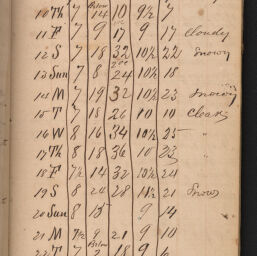 10 Th 7 Below 14 10 9½ 7
11 F 7 9 17 9 17 Cloudy
12 S 7 18 32 10½ 22 Snowy
13 Sun 7 8 24 10½ 18
14 M 7 19 32 10½ 23 Snowy
15 T 7 18 26 10 10 Clear
16 W 8 16 34 10½ 25 "
17 Th 8 18 36 10 23 "
18 F 7½ 14 32 10½ 24
19 S 8 24 28 21 Snow
20 Sun 8 15 9 14
21 M 7½ 9 21 9 10
22 T 7 Below 18 9 6